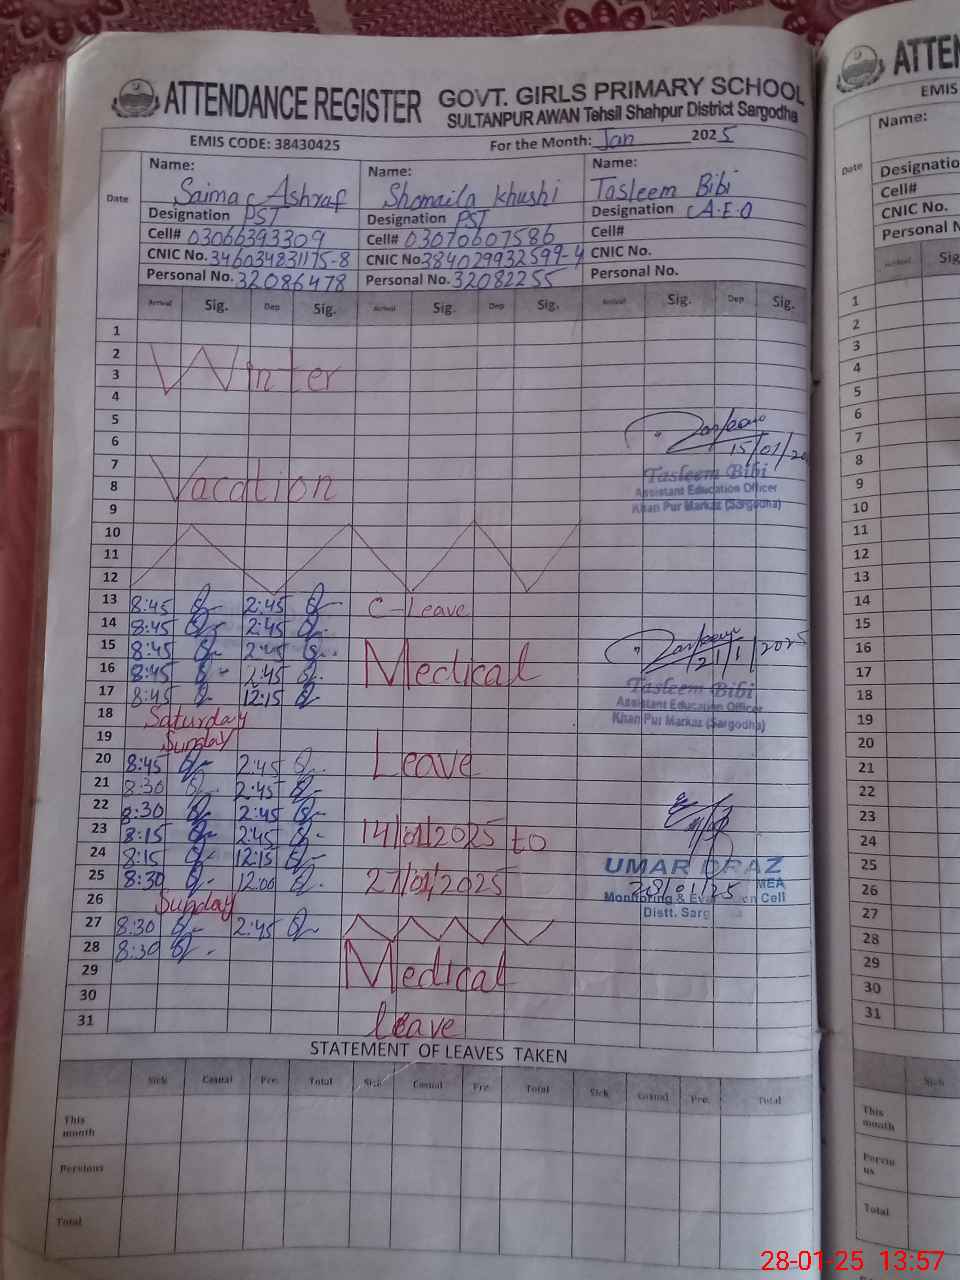 ATTENDANCE REGISTER GOVT. GIRLS PRIMARY SCHOOL
SULTANPUR AWAN Tehsil Shahpur District Sargodha
EMIS CODE: 38430425 For the Month: Jan 2025
Date Name: Name: Name:
Saima Ashraf Shomaila Khushi Tasleem Bibi
Designation PST Designation PST Designation A.E.O
Cell# 03066393309 Cell# 03070607586 Cell#
CNIC No. 346034831175-8 CNIC No. 384029932599-4 CNIC No.
Personal No. 32086478 Personal No. 32082255 Personal No.
Arrival Sig. Dep Sig. Arrival Sig. Dep Sig. Arrival Sig. Dep Sig.
1
2
3 Winter
4
5
6 15/01/20
7 Tasleem Bibi
8 Vacation Assistant Education Officer
9 Khan Pur Markaz (Sargodha)
10
11
12
13 8:45 2:45 C-Leave
14 8:45 2:45
15 8:45 2:45 21/1/2025
16 8:45 2:45 Medical
17 8:45 12:15 Tasleem Bibi
18 Saturday Assistant Education Officer
19 Sunday Khan Pur Markaz (Sargodha)
20 8:45 2:45 Leave
21 8:30 2:45
22 8:30 2:45
23 8:15 2:45 14/01/2025 to
24 8:15 12:15 UMAR DRAZ
25 8:30 12:00 27/01/2025 28/01/25 MEA
26 Sunday Monitoring & Evaluation Cell
Distt. Sarg
27 8:30 2:45
28 8:30 Medical
29
30
31 leave
STATEMENT OF LEAVES TAKEN
Sick Casual Pre. Total Sick Casual Pre Total Sick Casual Pre. Total
This month
Persious
Total
ATTEN
EMIS
Date Name:
Designatio
Cell#
CNIC No.
Personal N
Arrival Sig
1
2
3
4
5
6
7
8
9
10
11
12
13
14
15
16
17
18
19
20
21
22
23
24
25
26
27
28
29
30
31
Sick
This month
Persiu us
Total
28-01-25 13:57